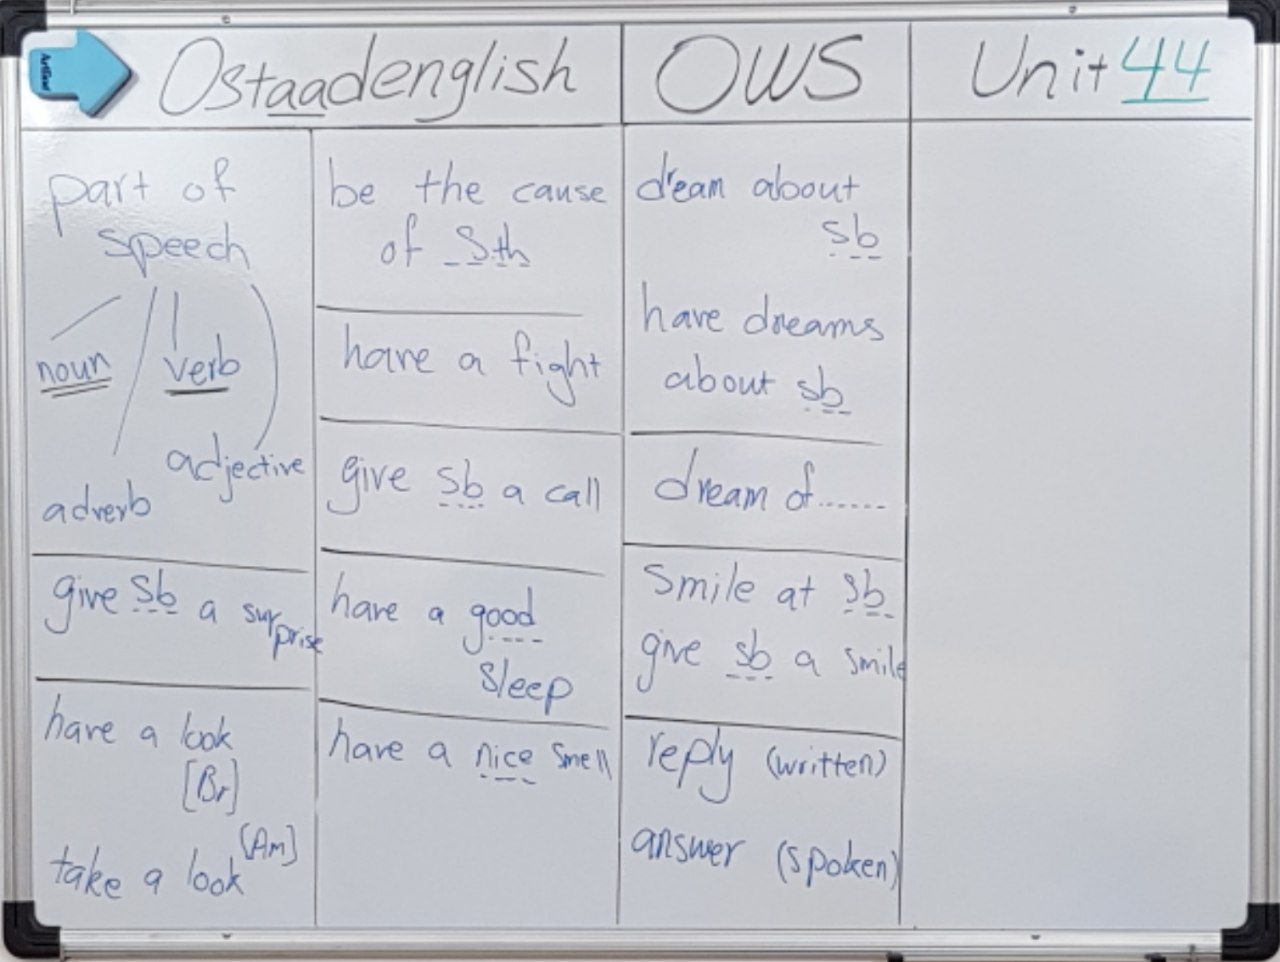 Ostaadenglish
OWS
Unit 44
part of
speech
noun
verb
adjective
adverb
give sb a surprise
have a look
[Br]
[Am]
take a look
be the cause
of sth
have a fight
give sb a call
have a good
sleep
have a nice smell
dream about
sb
have dreams
about sb
dream of......
smile at sb
give sb a smile
reply (written)
answer (spoken)